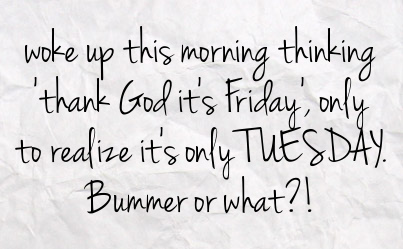 woke up this morning thinking
'thank God it's Friday', only
to realize it's only TUESDAY.
Bummer or what?!